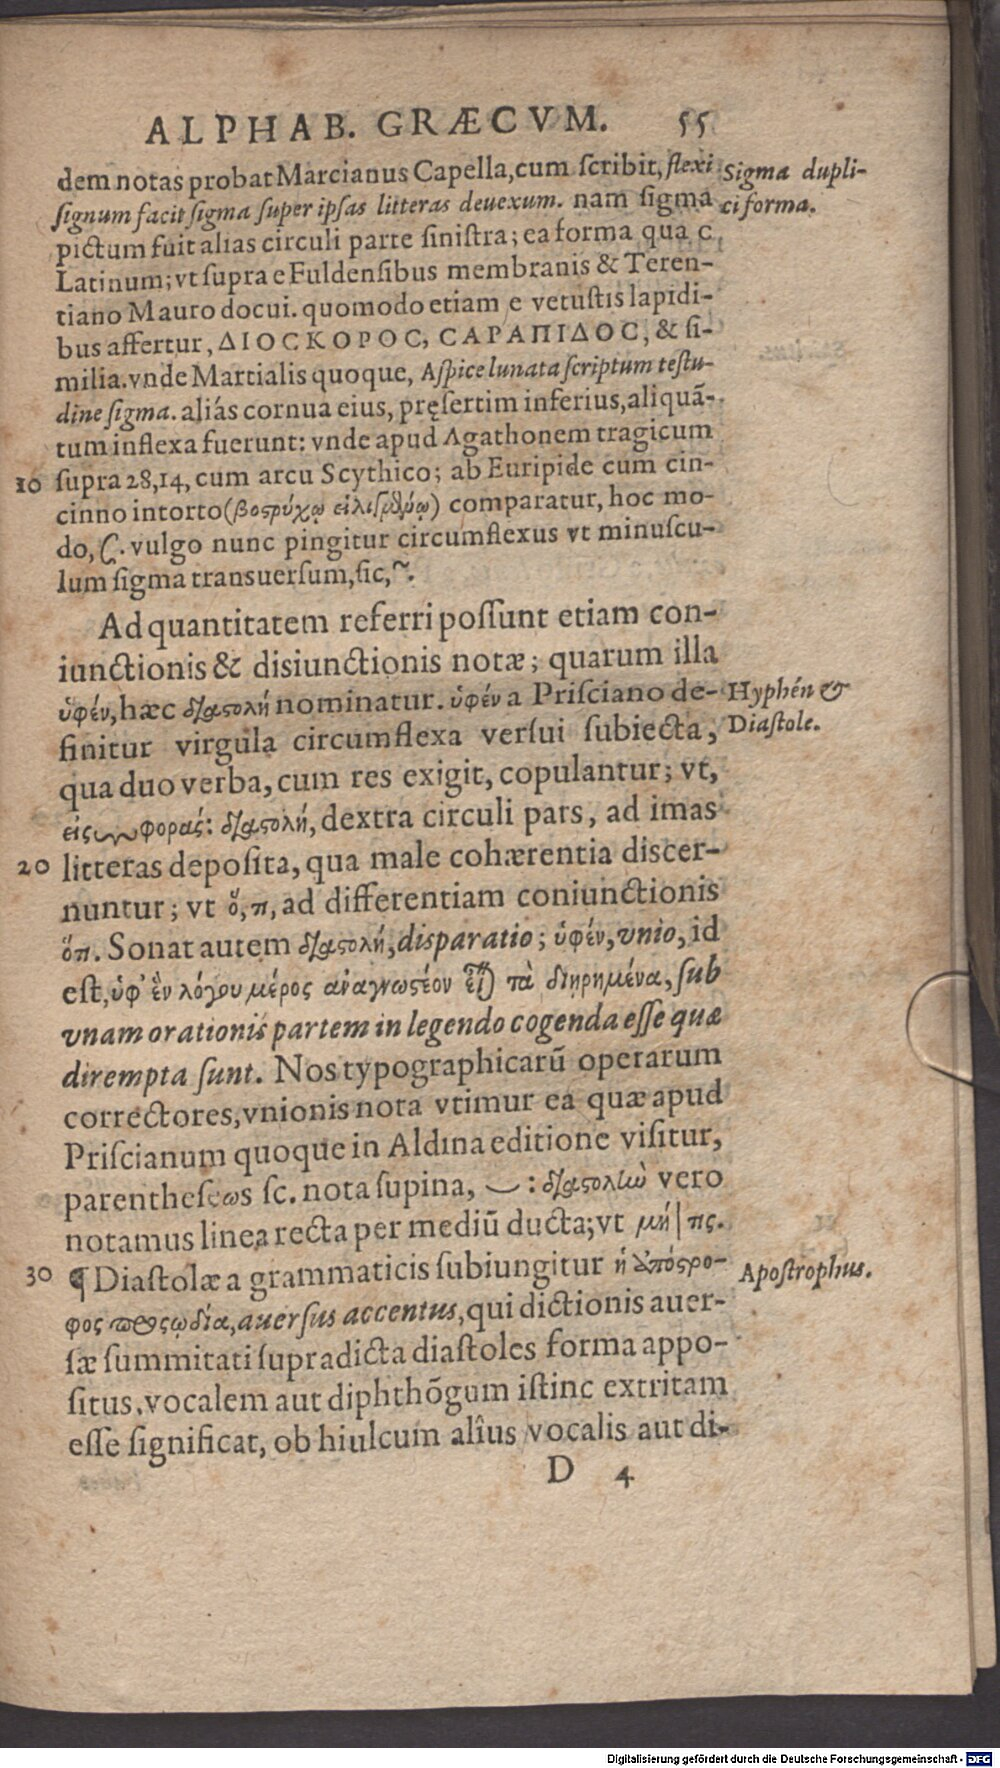 ALPHAB. GRÆCVM. 55
dem notas probat Marcianus Capella, cum ſcribit, flexi
Sigma dupli-
ſignum facit ſigma ſuper ipſas litteras deuexum. nam ſigma
ci forma.
pictum fuit alias circuli parte ſiniſtra; ea forma qua c
Latinum; vt ſupra e Fuldenſibus membranis & Teren-
tiano Mauro docui. quomodo etiam e vetuſtis lapidi-
bus affertur, ΔΙΟϹΚΟΡΟϹ, ϹΑΡΑΠΙΔΟϹ, & ſi-
milia. vnde Martialis quoque, Aſpice lunata ſcriptum teſtu-
dine ſigma. aliás cornua eius, pręſertim inferius, aliquã-
tum inflexa fuerunt: vnde apud Agathonem tragicum
10 ſupra 28,14, cum arcu Scythico; ab Euripide cum cin-
cinno intorto (βοςρύχῳ) comparatur, hoc mo-
do, Ϛ. vulgo nunc pingitur circumflexus vt minuſcu-
lum ſigma transuerſum, ſic, ~.
Ad quantitatem referri poſſunt etiam con-
iunctionis & disiunctionis notæ; quarum illa
ὑφέν, hæc διαστολή nominatur. ὑφέν a Priſciano de-
Hyphén &
finitur virgula circumflexa verſui ſubiecta,
Diaſtole.
qua duo verba, cum res exigit, copulantur; vt,
εἰς‿φοράς: διαστολή, dextra circuli pars, ad imas
20 litteras depoſita, qua male cohærentia diſcer-
nuntur; vt ὅ,π, ad differentiam coniunctionis
ὅπ. Sonat autem διαστολή, disparatio; ὑφέν, vnio, id
eſt, ὑφ' ἓν λόγου μέρος ἀναγνωςέον εἶναι τὰ διῃρημένα, ſub
vnam orationis partem in legendo cogenda eſſe quæ
dirempta ſunt. Nos typographicarũ operarum
correctores, vnionis nota vtimur ea quæ apud
Priſcianum quoque in Aldina editione viſitur,
parentheſεωs ſc. nota ſupina, ‿ : διαστολὴν vero
notamus linea recta per mediũ ducta; vt μή|πς.
30 ¶ Diaſtolæ a grammaticis ſubiungitur ἡ ἀπόςρο-
Apoſtrophus.
φος προςῳδία, auerſus accentus, qui dictionis auer-
ſæ ſummitati ſupradicta diaſtoles forma appo-
ſitus, vocalem aut diphthõgum iſtinc extritam
eſſe ſignificat, ob hiulcum alîus vocalis aut di-
D 4
Digitalisierung gefördert durch die Deutsche Forschungsgemeinschaft - DFG